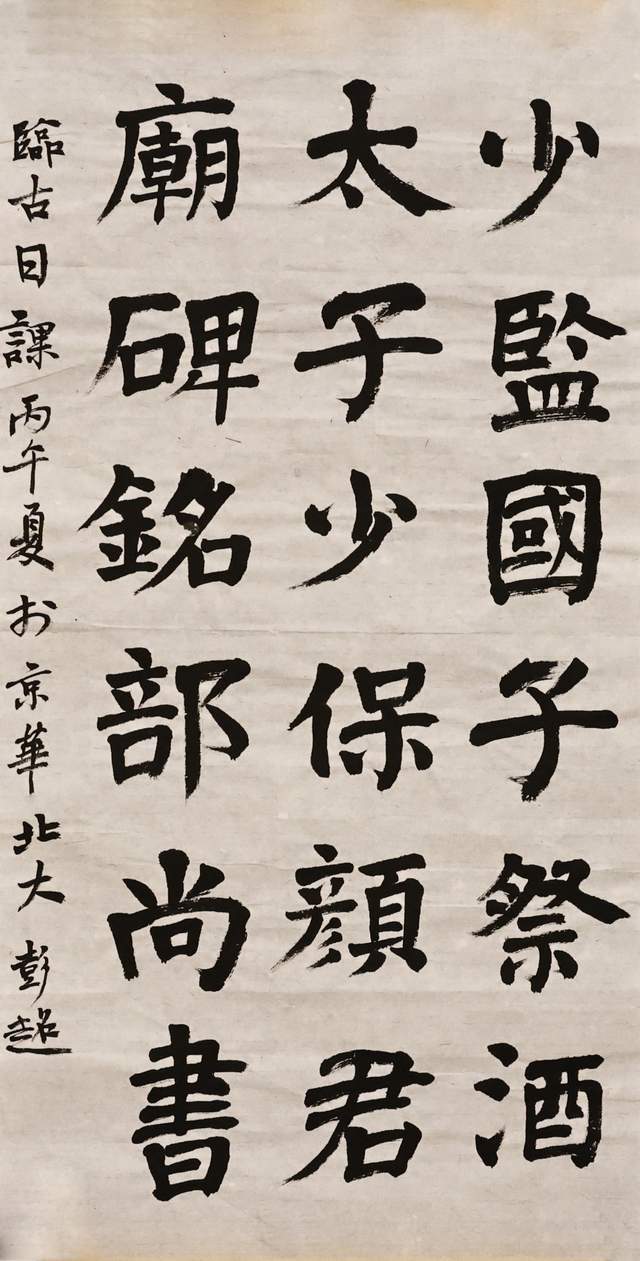 少監國子祭酒
太子少保顏君
廟碑銘部尚書
臨古日課丙午夏於京華北大彭超